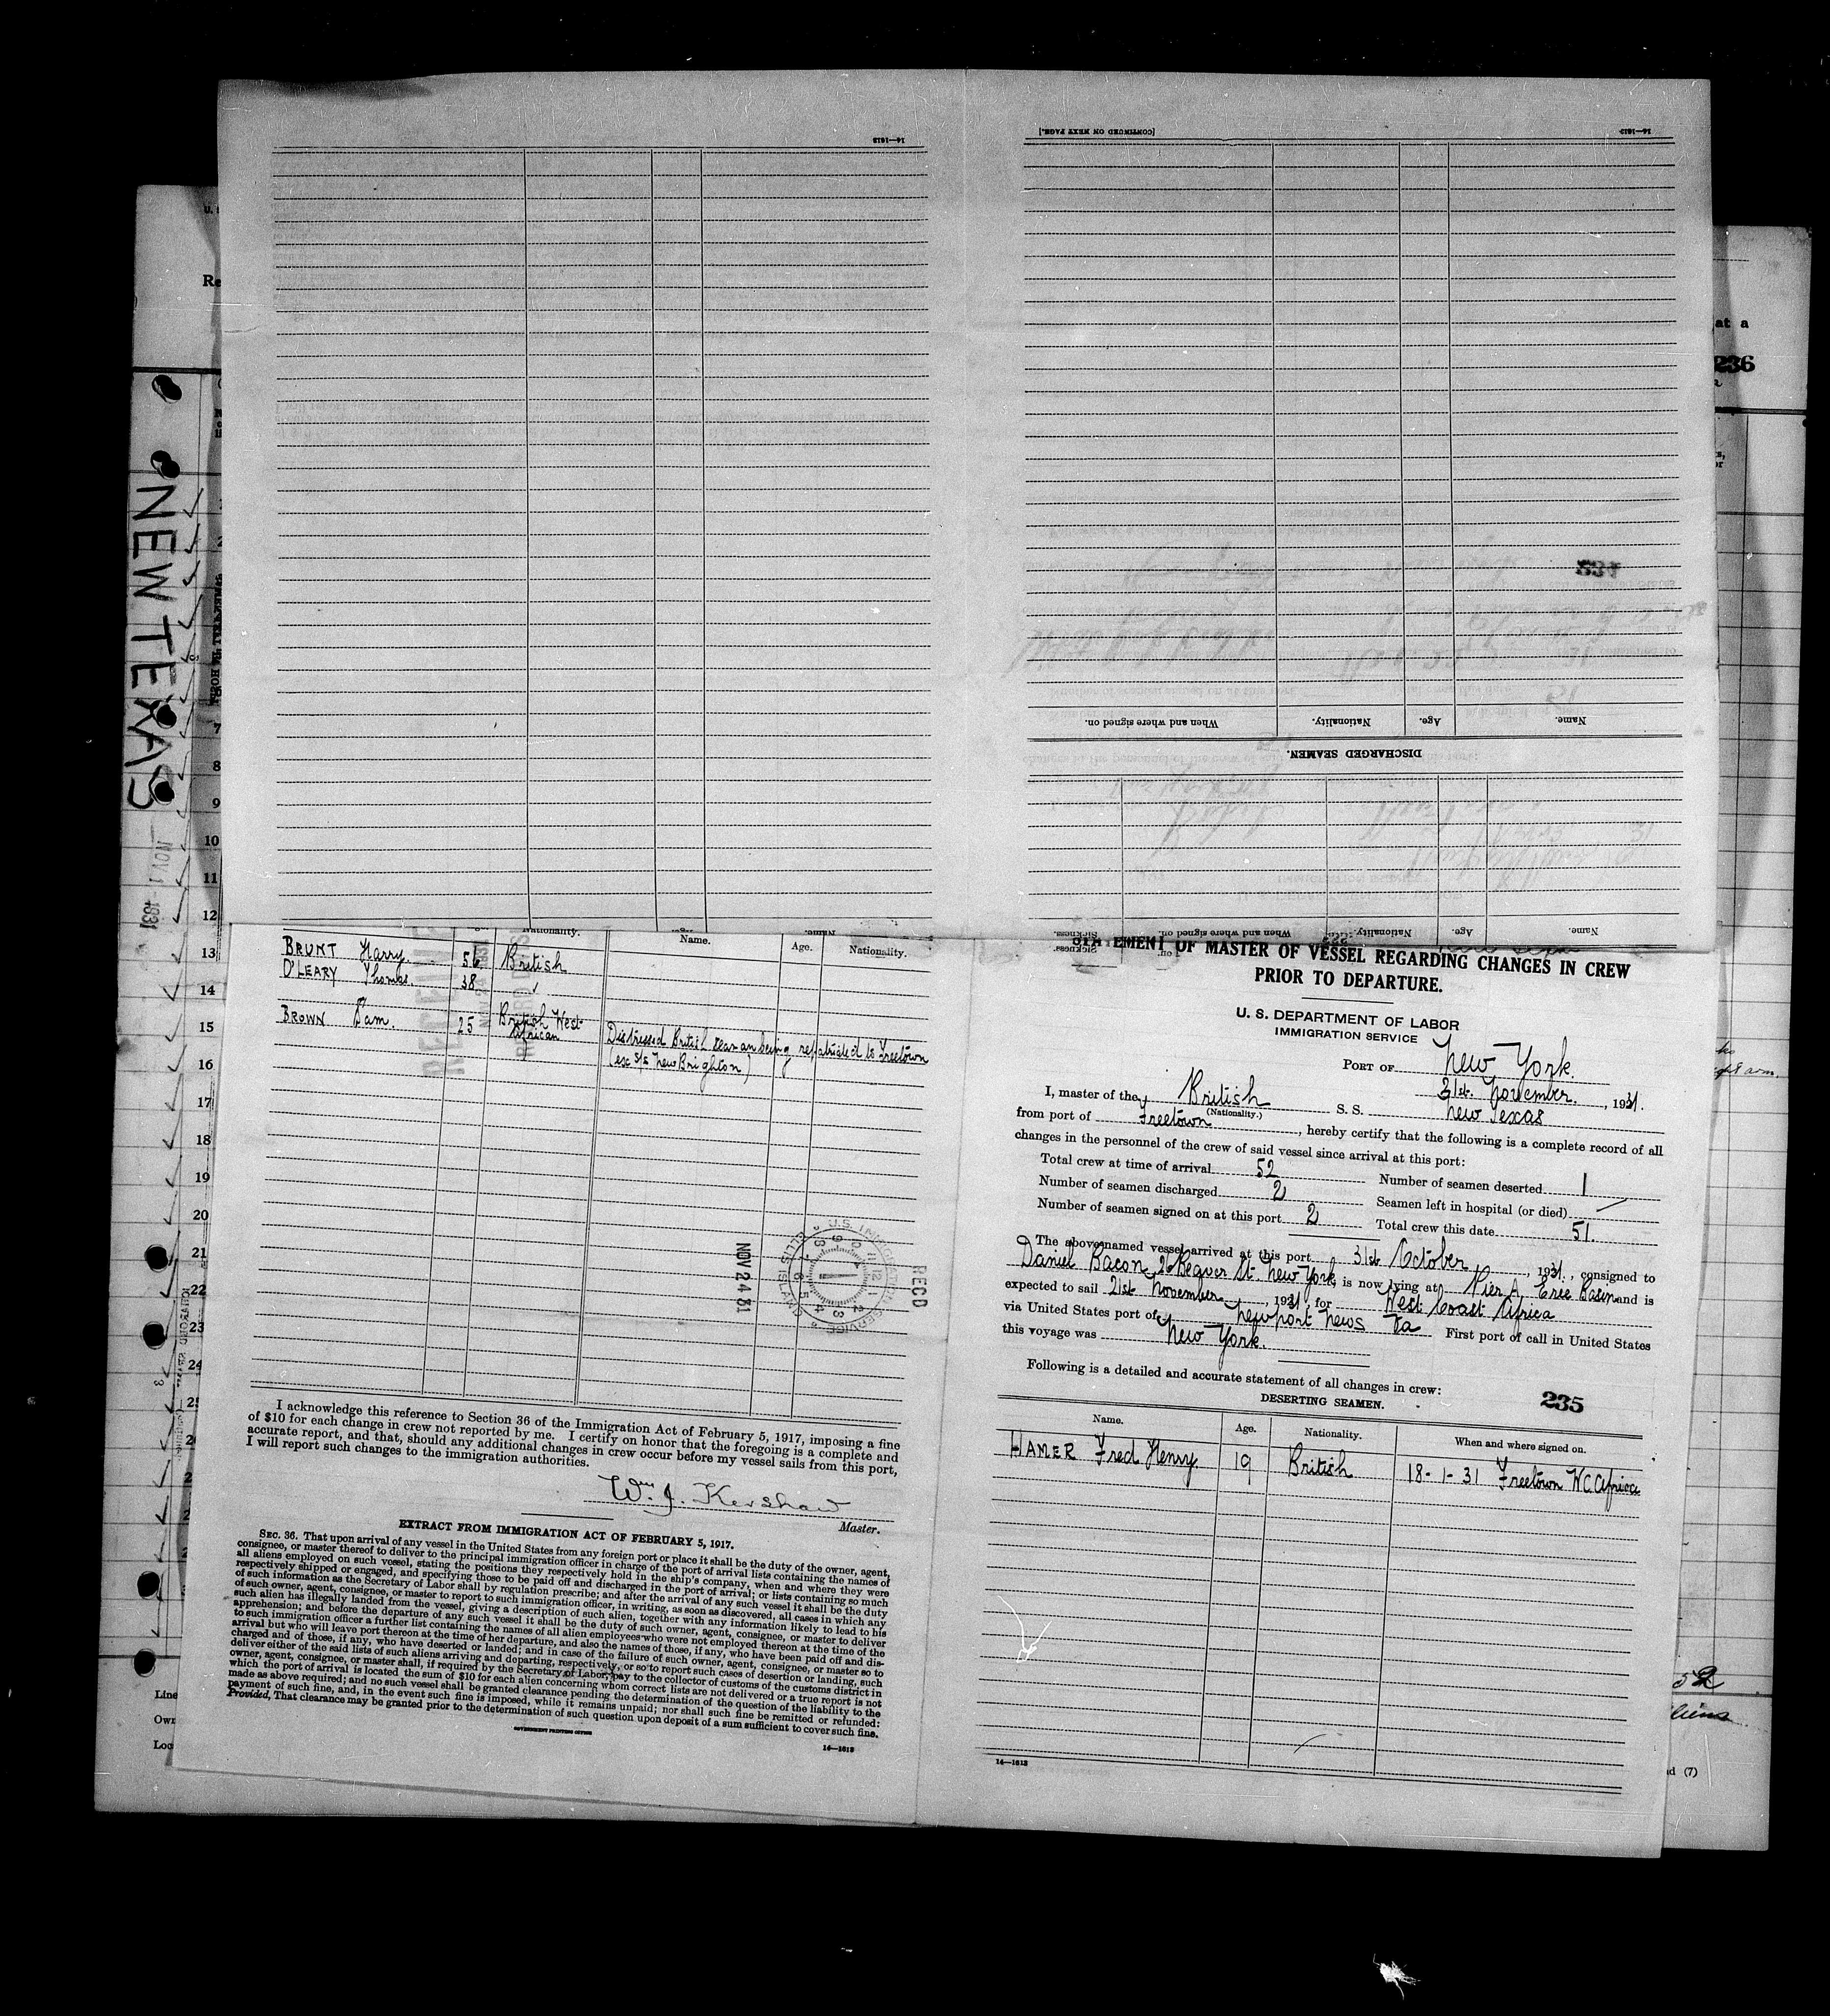 14—1613
[CONTINUED ON NEXT PAGE.]
14—1613
When and where signed on.
Nationality.
Age.
Name.
DISCHARGED SEAMEN.
Sickness
When and where signed on.
Nationality.
Age.
Name.
U.
Re
at a
236
NEW TEXAS
NOV 1 1931
7
8
9
10
11
12
13
14
15
16
17
18
19
20
21
22
23
24
Nationality.
Name.
Age.
Nationality.
BRUNT Harry. 56 British
O'LEARY Thomas. 38 "
BROWN Sam. 25 British West African
Distressed British seaman being repatriated to Freetown
(ex s/s New Brighton)
NOV 24 31
U.S. IMMIGRATION SERVICE
ELLIS ISLAND
RECD
I acknowledge this reference to Section 36 of the Immigration Act of February 5, 1917, imposing a fine
of $10 for each change in crew not reported by me. I certify on honor that the foregoing is a complete and
accurate report, and that, should any additional changes in crew occur before my vessel sails from this port,
I will report such changes to the immigration authorities.
Wm. J. Kershaw
Master.
EXTRACT FROM IMMIGRATION ACT OF FEBRUARY 5, 1917.
SEC. 36. That upon arrival of any vessel in the United States from any foreign port or place it shall be the duty of the owner, agent,
consignee, or master thereof to deliver to the principal immigration officer in charge of the port of arrival lists containing the names of
all aliens employed on such vessel, stating the positions they respectively hold in the ship's company, when and where they were
respectively shipped or engaged, and specifying those to be paid off and discharged in the port of arrival; or lists containing so much
of such information as the Secretary of Labor shall by regulation prescribe; and after the arrival of any such vessel it shall be the duty
of such owner, agent, consignee, or master to report to such immigration officer, in writing, as soon as discovered, all cases in which any
such alien has illegally landed from the vessel, giving a description of such alien, together with any information likely to lead to his
apprehension; and before the departure of any such vessel it shall be the duty of such owner, agent, consignee, or master to deliver
to such immigration officer a further list containing the names of all alien employees who were not employed thereon at the time of the
arrival but who will leave port thereon at the time of her departure, and also the names of those, if any, who have been paid off and dis-
charged and of those, if any, who have deserted or landed; and in case of the failure of such owner, agent, consignee, or master so to
deliver either of the said lists of such aliens arriving and departing, respectively, or so to report such cases of desertion or landing, such
owner, agent, consignee, or master shall, if required by the Secretary of Labor, pay to the collector of customs of the customs district in
which the port of arrival is located the sum of $10 for each alien concerning whom correct lists are not delivered or a true report is not
made as above required; and no such vessel shall be granted clearance pending the determination of the question of the liability to the
payment of such fine, and, in the event such fine is imposed, while it remains unpaid; nor shall such fine be remitted or refunded:
Provided, That clearance may be granted prior to the determination of such question upon deposit of a sum sufficient to cover such fine.
GOVERNMENT PRINTING OFFICE
14—1613
STATEMENT OF MASTER OF VESSEL REGARDING CHANGES IN CREW
PRIOR TO DEPARTURE.
U. S. DEPARTMENT OF LABOR
IMMIGRATION SERVICE
PORT OF New York.
21st. November. , 1931.
I, master of the British S. S. New Texas
(Nationality.)
from port of Freetown , hereby certify that the following is a complete record of all
changes in the personnel of the crew of said vessel since arrival at this port:
Total crew at time of arrival 52 Number of seamen deserted 1
Number of seamen discharged 2 Seamen left in hospital (or died) —
Number of seamen signed on at this port 2 Total crew this date 51.
The above-named vessel arrived at this port 31st October , 1931., consigned to
Daniel Bacon, 26 Beaver St. New York, is now lying at Pier A. Erie Basin and is
expected to sail 21st November , 1931, for West Coast Africa
via United States port of Newport News Va First port of call in United States
this voyage was New York.
Following is a detailed and accurate statement of all changes in crew:
235
DESERTING SEAMEN.
Name. Age. Nationality. When and where signed on.
HAMER Fred Henry 19 British 18-1-31 Freetown W.C. Africa
14—1613
Line
Own
Loc
52
nd (7)